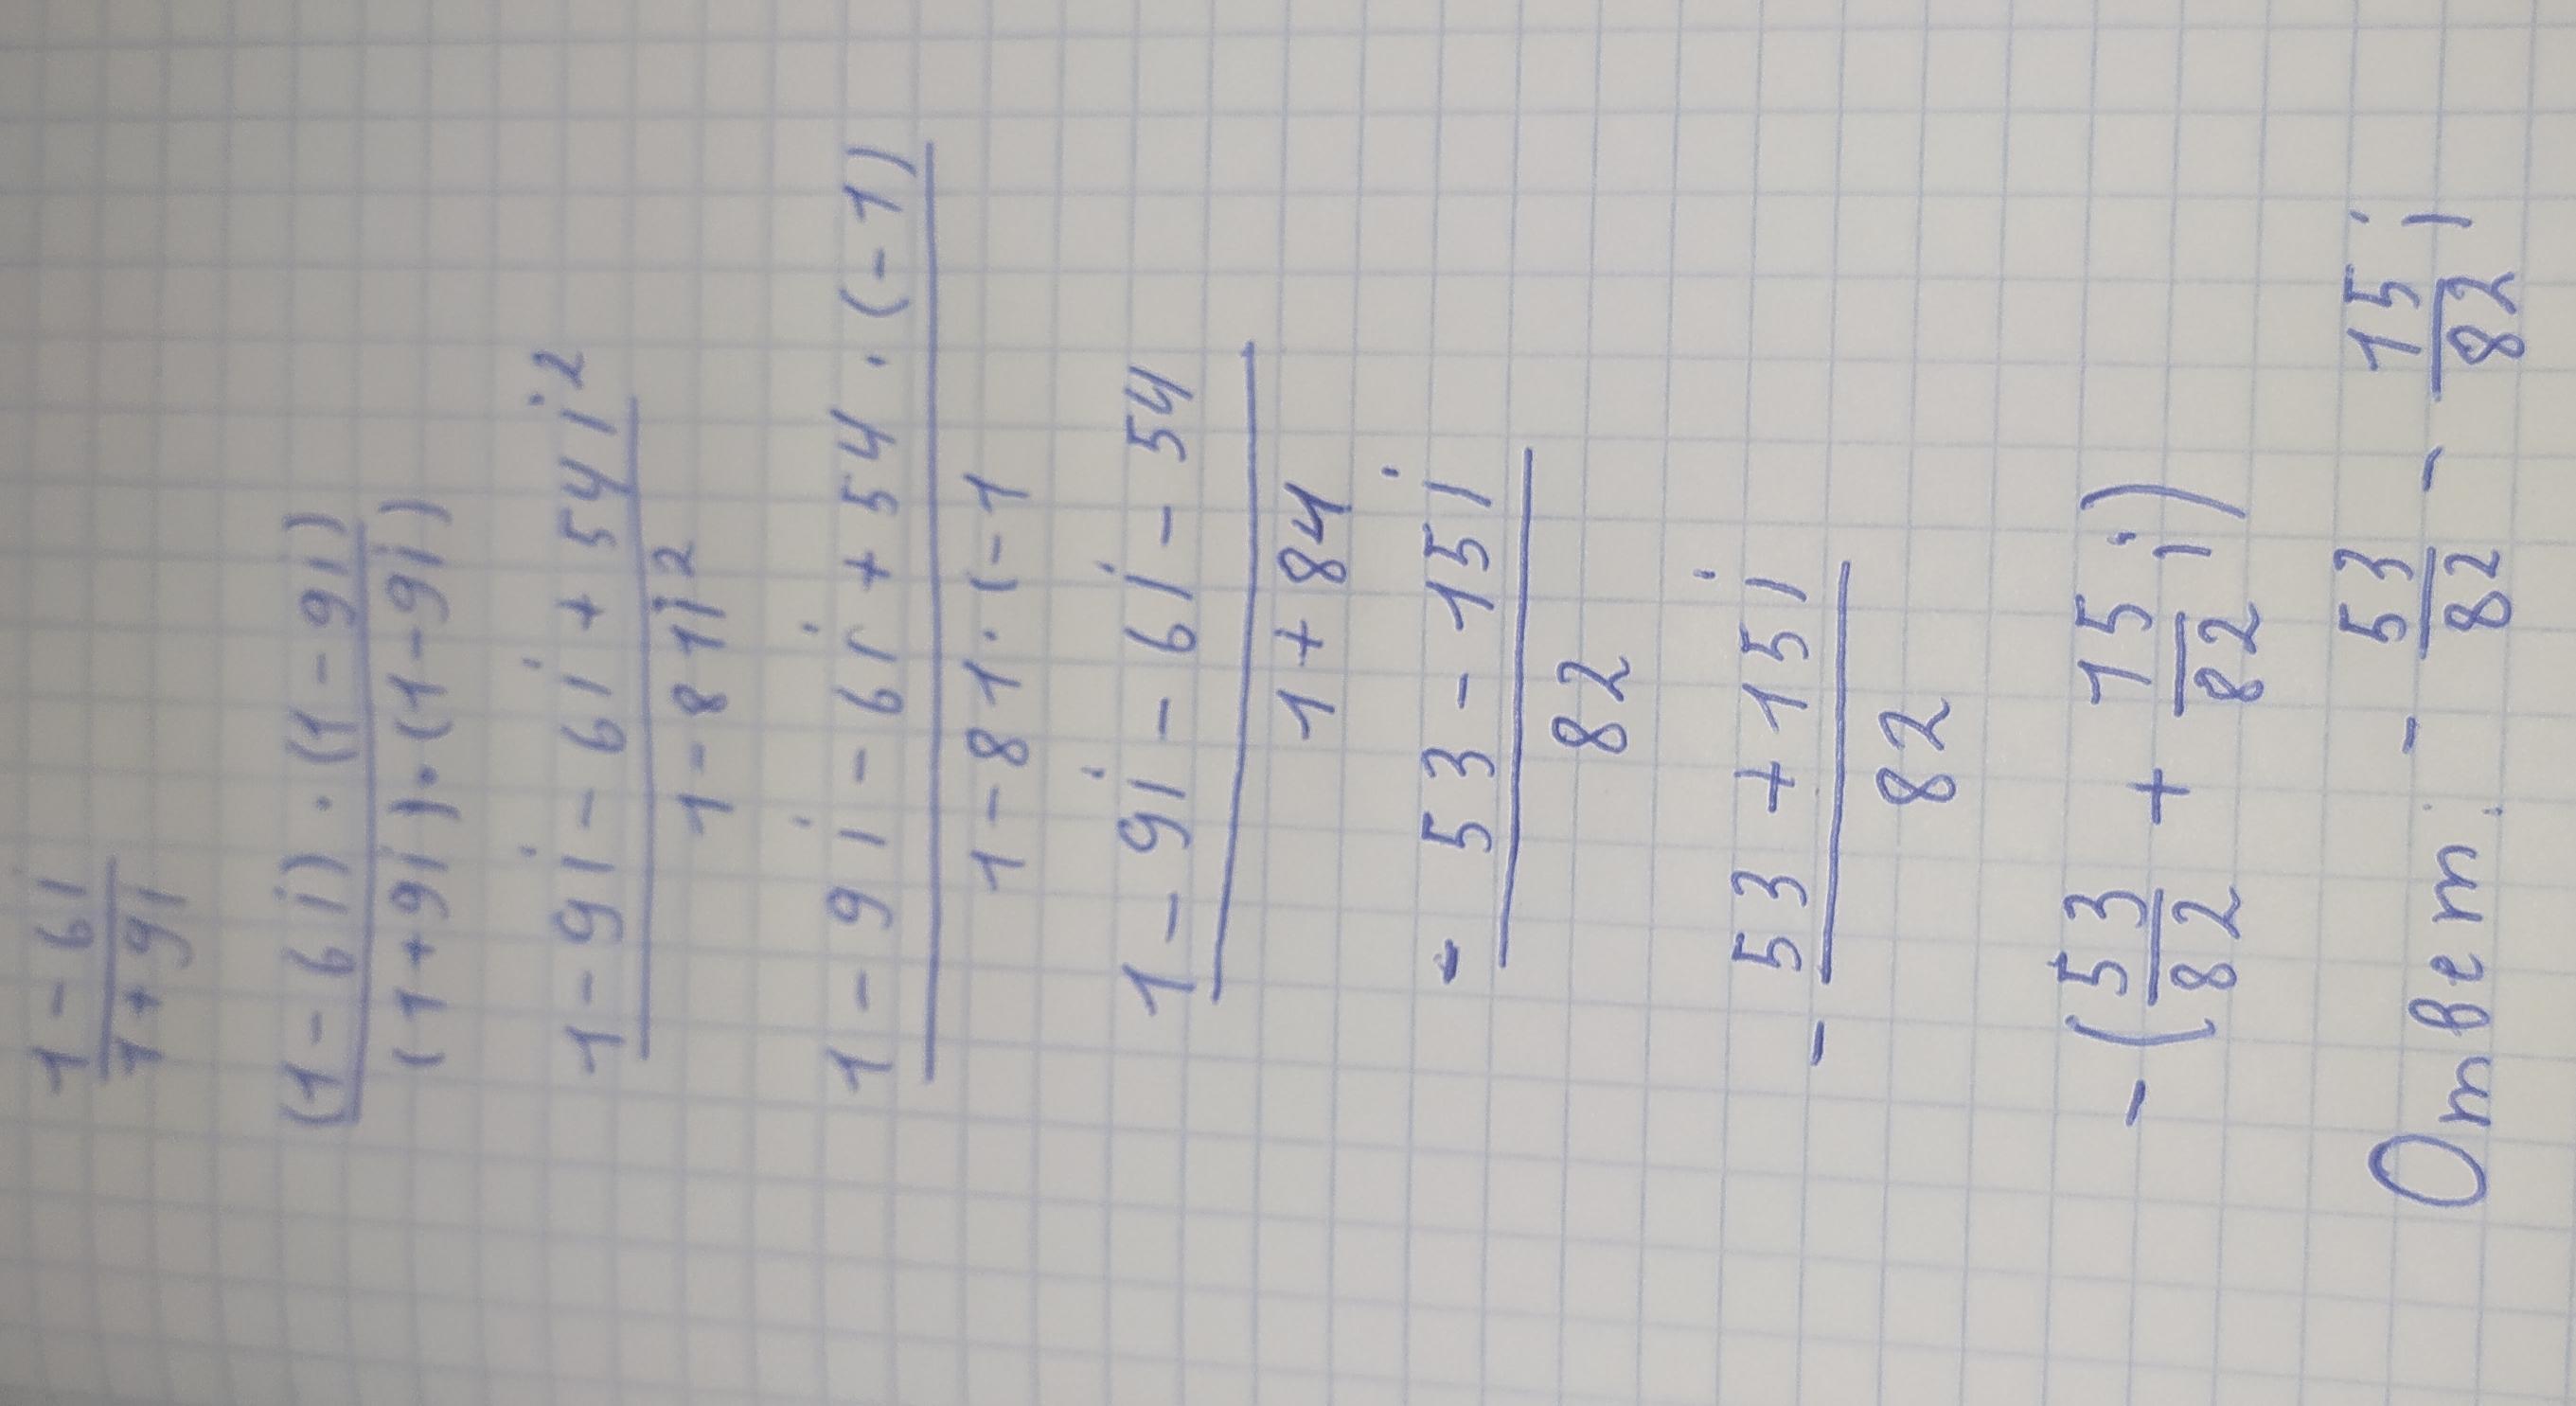 1 - 6i
1 + 9i
(1 - 6i) · (1 - 9i)
(1 + 9i) · (1 - 9i)
1 - 9i - 6i + 54i²
1 - 81i²
1 - 9i - 6i + 54 · (-1)
1 - 81 · (-1
1 - 9i - 6i - 54
1 + 84
- 53 - 15i
82
- 53 + 15i
82
- (53/82 + 15/82 i)
Ответ: - 53/82 - 15/82 i